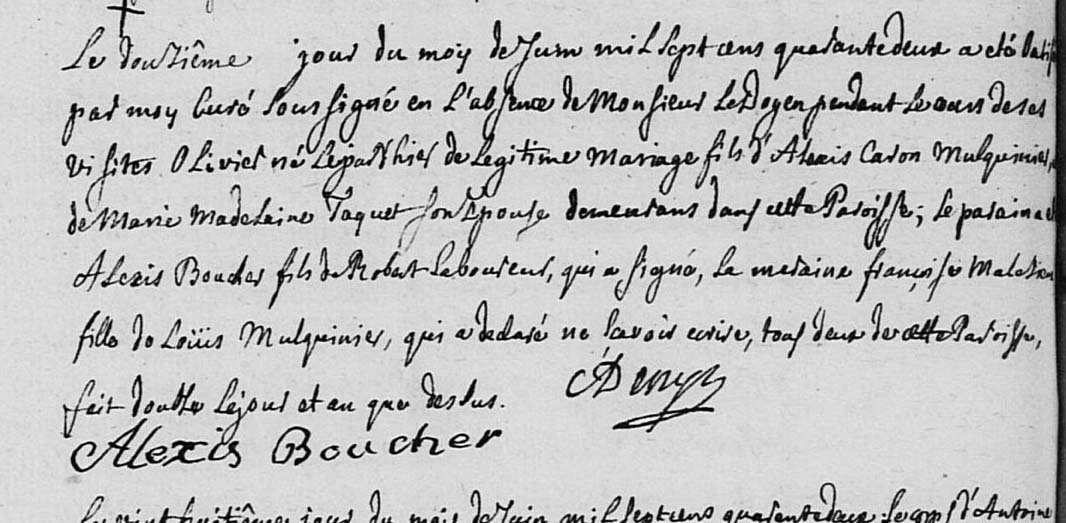 Le douziême jour du moy de Juin mil sept cens quarante deux a eté batisé
par moy Curé soussigné en l'absence de Monsieur le Doyen pendant le cours de ses
visites Olivier né le jour d'hier de legitime mariage fils d'Alexis Caron Mulquinier,
de Marie Madelaine Taquet son Epouse demeurans dans cette Paroisse; le paraina eté
Alexis Boucher fils de Robert Laboureur, qui a signé, la maraine françoise
fille de Loüis Mulquinier, qui a declaré ne savoir ecrire, tous deux de cette Paroisse,
fait double le jour et an que dessus.
Alexis Boucher
Le vint huitiême jour du mois de Juin mil sept cens quarante deux le corps d'Antoine